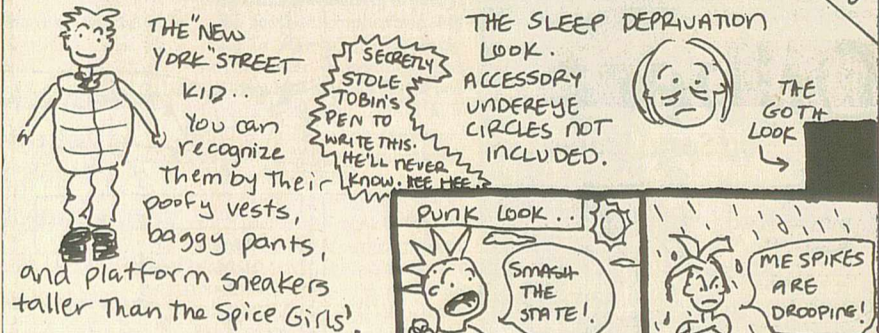 THE "NEW
YORK" STREET
KID..
You can
recognize
Them by Their
poofy vests,
baggy pants,
and platform sneakers
taller Than the Spice Girls'.
I SECRETLY
STOLE
TOBIN'S
PEN TO
WRITE THIS.
HE'LL NEVER
KNOW. HEE HEE.
THE SLEEP DEPRIVATION
LOOK.
ACCESSORY
UNDEREYE
CIRCLES NOT
INCLUDED.
THE
GOTH
LOOK
PUNK LOOK..
SMASH
THE
STATE!
ME SPIKES
ARE
DROOPING!